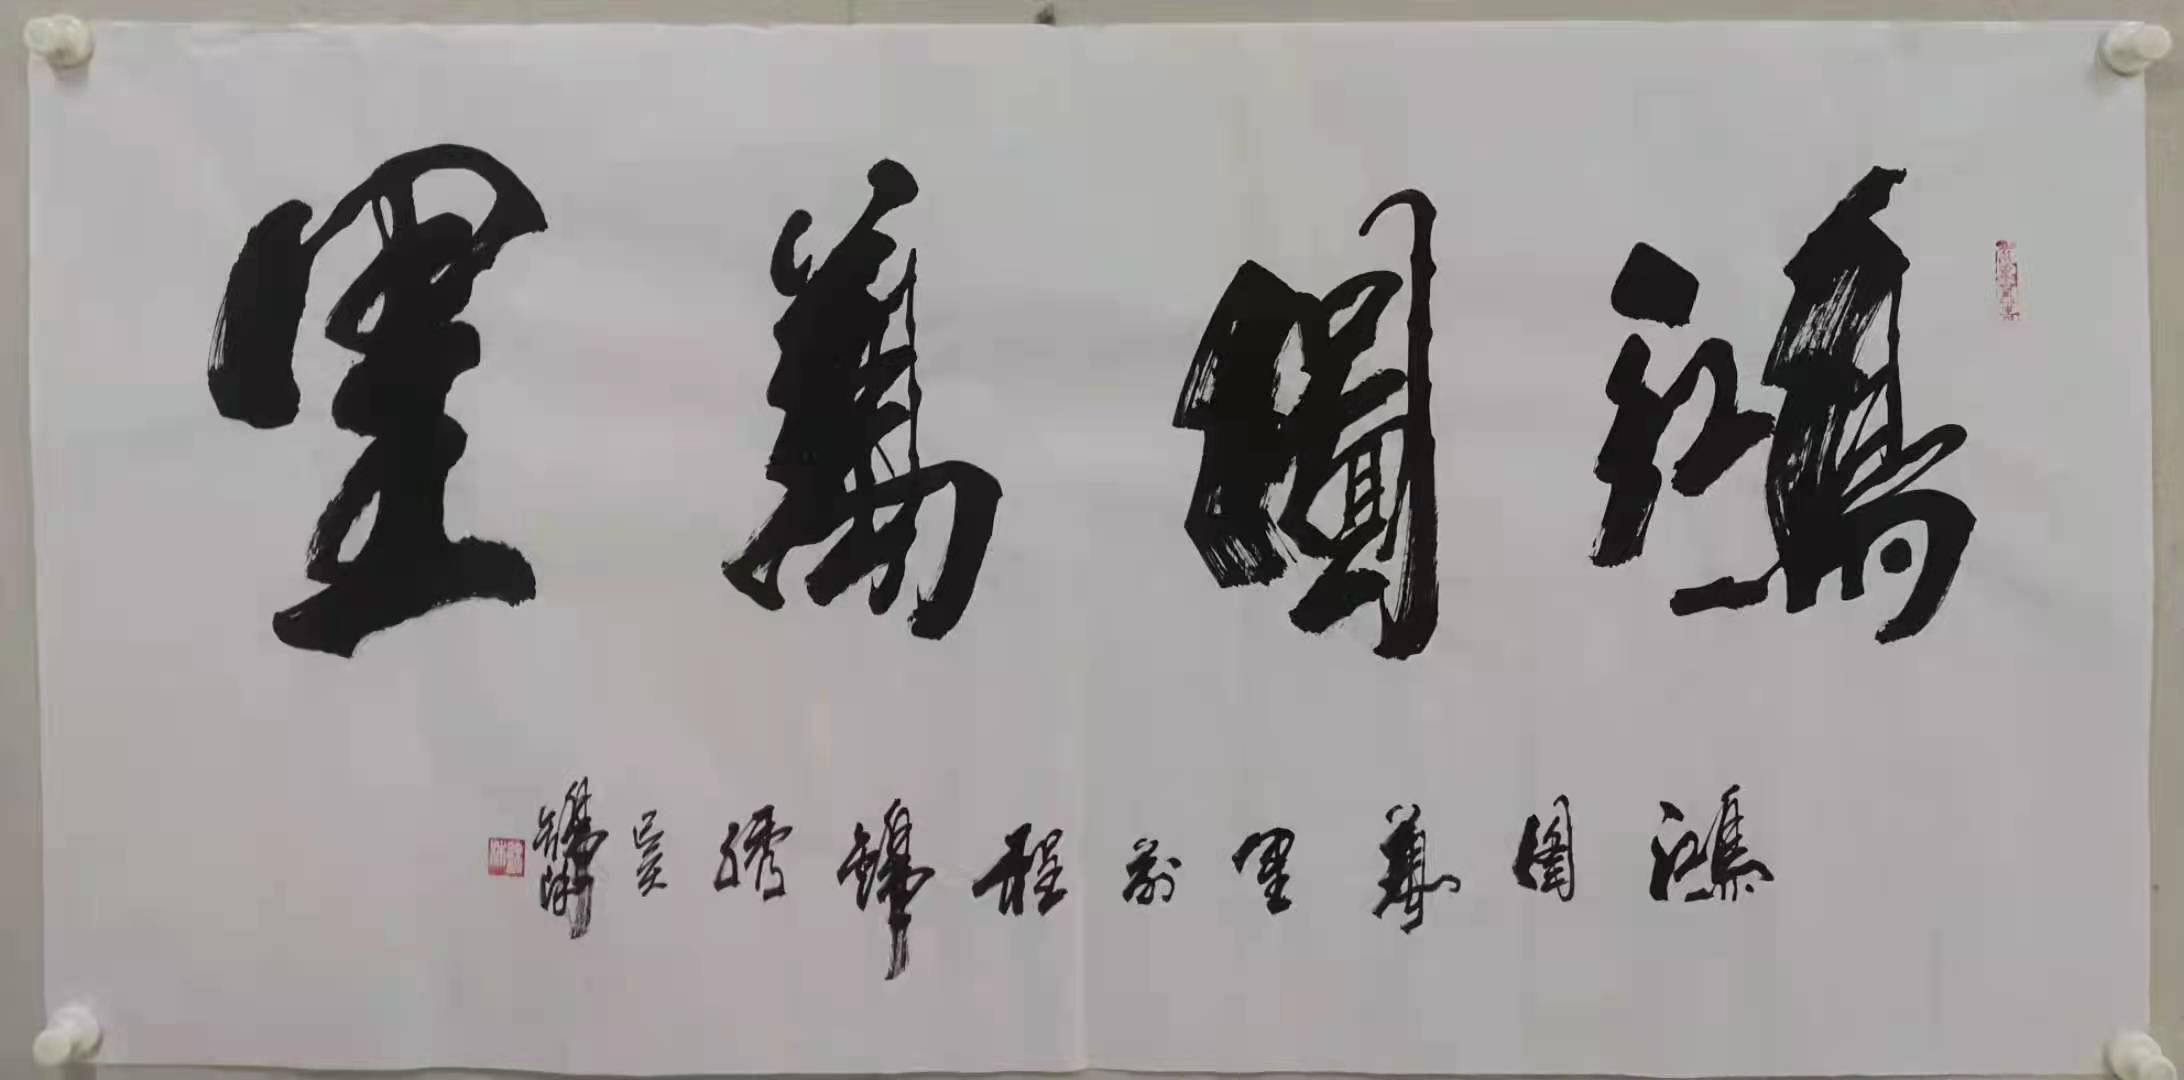 鴻圖萬里
鴻圖萬里前程錦绣吴